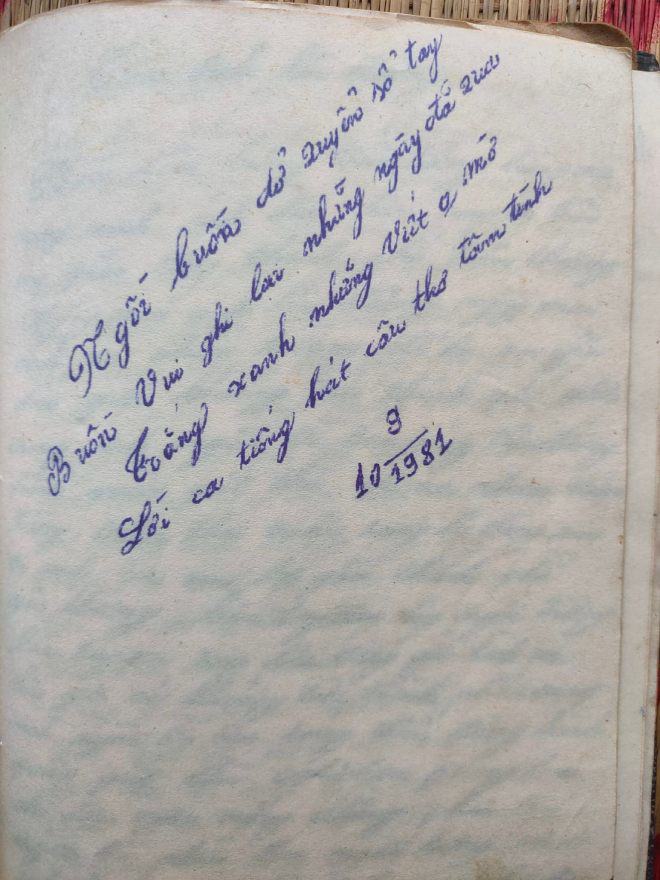 Ngồi buồn dở quyển sổ tay
Buồn vui ghi lại những ngày đã qua
Trăng xanh những vứt q mơ
Lời ca tiếng hát câu thơ tâm tình
9
10 1981